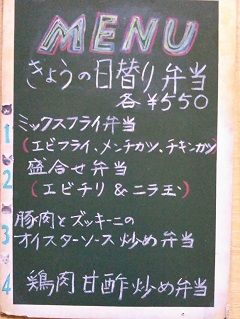 MENU
きょうの日替り弁当
各¥550
1 ミックスフライ弁当
(エビフライ、メンチカツ、チキンカツ)
2 盛合せ弁当
(エビチリ&ニラ玉)
3 豚肉とズッキーニの
オイスターソース炒め弁当
4 鶏肉甘酢炒め弁当